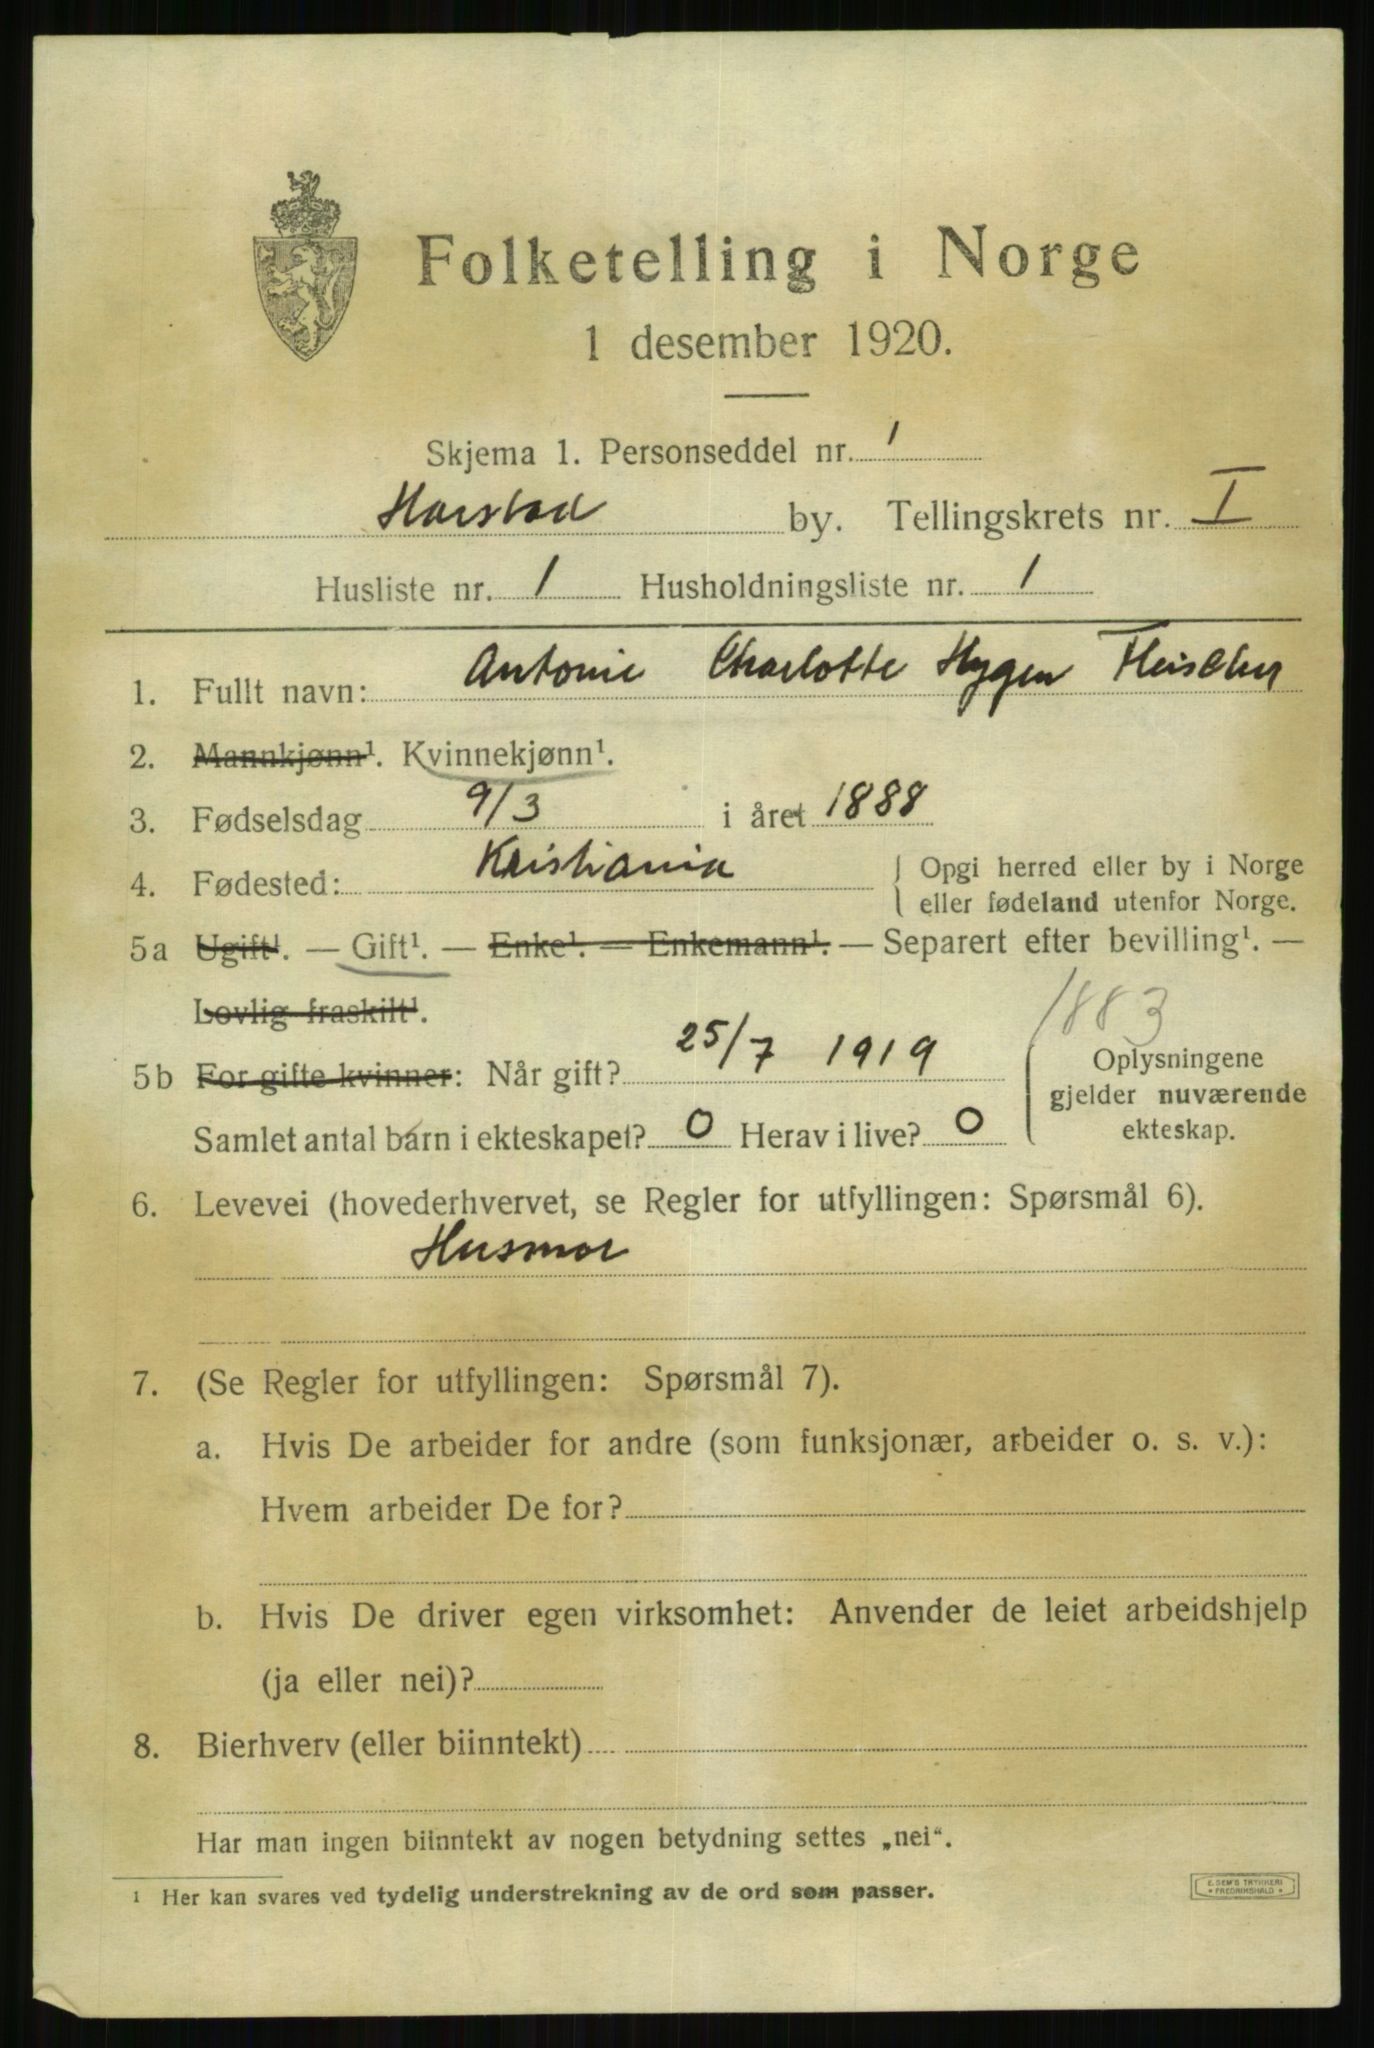 Folketelling i Norge
1 desember 1920.
Skjema 1. Personseddel nr. 1
Harstad by. Tellingskrets nr. I
Husliste nr. 1 Husholdningsliste nr. 1
1. Fullt navn: Antonie Charlotte Hygen Fleischer
2. Mannkjønn¹. Kvinnekjønn¹.
3. Fødselsdag 9/3 i året 1888
4. Fødested: Kristiania { Opgi herred eller by i Norge
eller fødeland utenfor Norge.
5a Ugift¹. — Gift¹. — Enke¹. — Enkemann¹. — Separert efter bevilling¹. —
Lovlig fraskilt¹.
1883
5b For gifte kvinner: Når gift? 25/7 1919
Samlet antal barn i ekteskapet? 0 Herav i live? 0
Oplysningene
gjelder nuværende
ekteskap.
6. Levevei (hovederhvervet, se Regler for utfyllingen: Spørsmål 6).
Husmor
7. (Se Regler for utfyllingen: Spørsmål 7).
a. Hvis De arbeider for andre (som funksjonær, arbeider o. s. v.):
Hvem arbeider De for?
b. Hvis De driver egen virksomhet: Anvender de leiet arbeidshjelp
(ja eller nei)?
8. Bierhverv (eller biinntekt)
Har man ingen biinntekt av nogen betydning settes „nei“.
1 Her kan svares ved tydelig understrekning av de ord som passer.
E. SEM'S TRYKKERI
* FREDRIKSHALD *